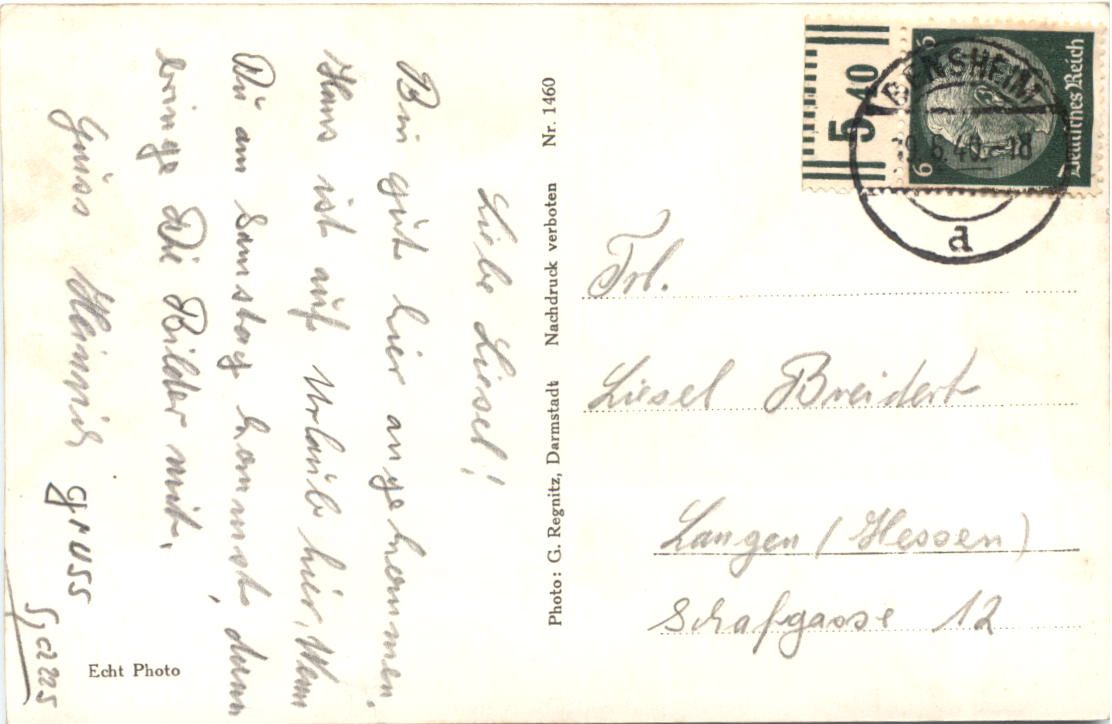 Liebe Liesel!
Bin gut hier angekommen.
Hans ist auf Urlaub hier, Wenn
Du am Samstag kommst, dann
bringe Die Bilder mit.
Gruss Heinrich
Gruss
Echt Photo
Photo: G. Regnitz, Darmstadt Nachdruck verboten Nr. 1460
5 40
BENSHEIM
9.6.40.-18
d
6 6
Deutsches Reich
Frl.
Liesel Breidert
Langen (Hessen)
Schafgasse 12